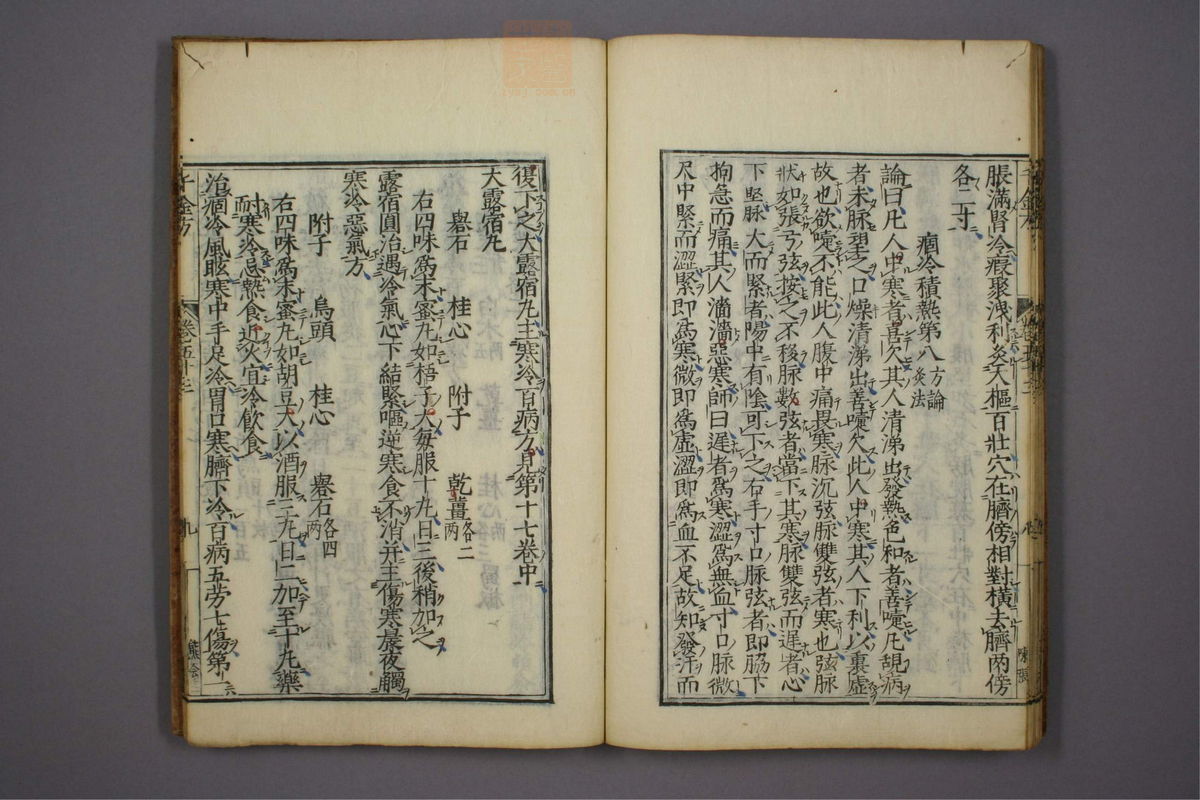 脹滿腎冷瘕聚洩利灸天樞百壯穴在臍傍相對横去臍两傍
各二寸
痼冷積熱第八 方論 灸法
論曰凡人中寒者喜欠其人清涕出發熱色和者善嚏凡覘病
者未脉望之口燥清涕出善嚏欠此人中寒其人下利以裏虚
故也欲嚏不能此人腹中痛畏寒脉沉弦脉雙弦者寒也弦脉
狀如張弓弦按之不移脉數弦者當下其寒脉雙弦而遲者心
下堅脉大而緊者陽中有陰可下之右手寸口脉弦者即脇下
拘急而痛其人濇濇惡寒師曰遲者爲寒澀爲無血寸口脉微
尺中緊而澀緊即爲寒微即爲虚澀即爲血不足故知發汗而
復下之大露宿丸主寒冷百病方見第十七卷中
大露宿丸
礜石 桂心 附子 乾薑各二两
右四味爲末蜜丸如梧子大每服十丸日三後稍加之
露宿圓治遇冷氣心下結緊嘔逆寒食不消并主傷寒晨夜觸
寒冷惡氣方
附子 烏頭 桂心 礜石各四两
右四味爲末蜜丸如胡豆大以酒服三丸日二加至十丸藥
耐寒冷忌熱食近火宜冷飲食
治痼冷風眩寒中手足冷胃口寒臍下冷百病五劳七傷第一
千金方 卷五十七 九